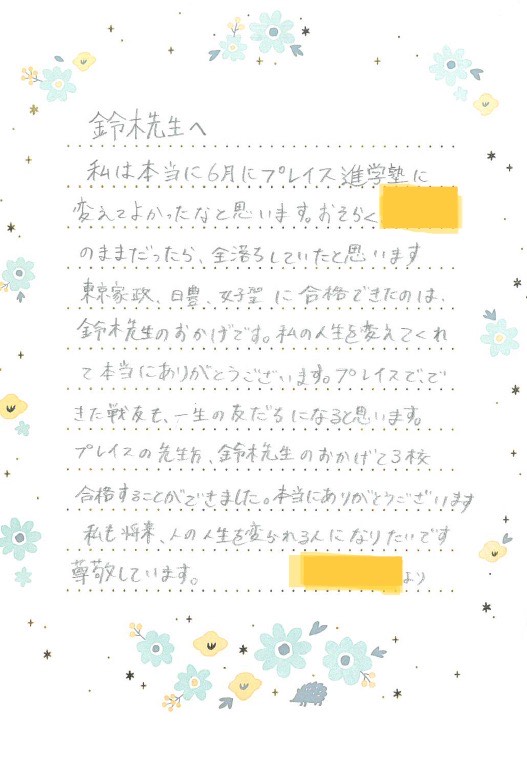 鈴木先生へ
私は本当に6月にプレイス進学塾に
変えてよかったなと思います。おそらく
のままだったら、全落ちしていたと思います
東京家政、日豊、女子聖に合格できたのは、
鈴木先生のおかげです。私の人生を変えてくれ
て本当にありがとうございます。プレイスで、で
きた戦友も、一生の友だちになると思います。
プレイスの先生方、鈴木先生のおかげで3校
合格することができました。本当にありがとうございます
私も将来、人の人生を変られる人になりたいです
尊敬しています。
より